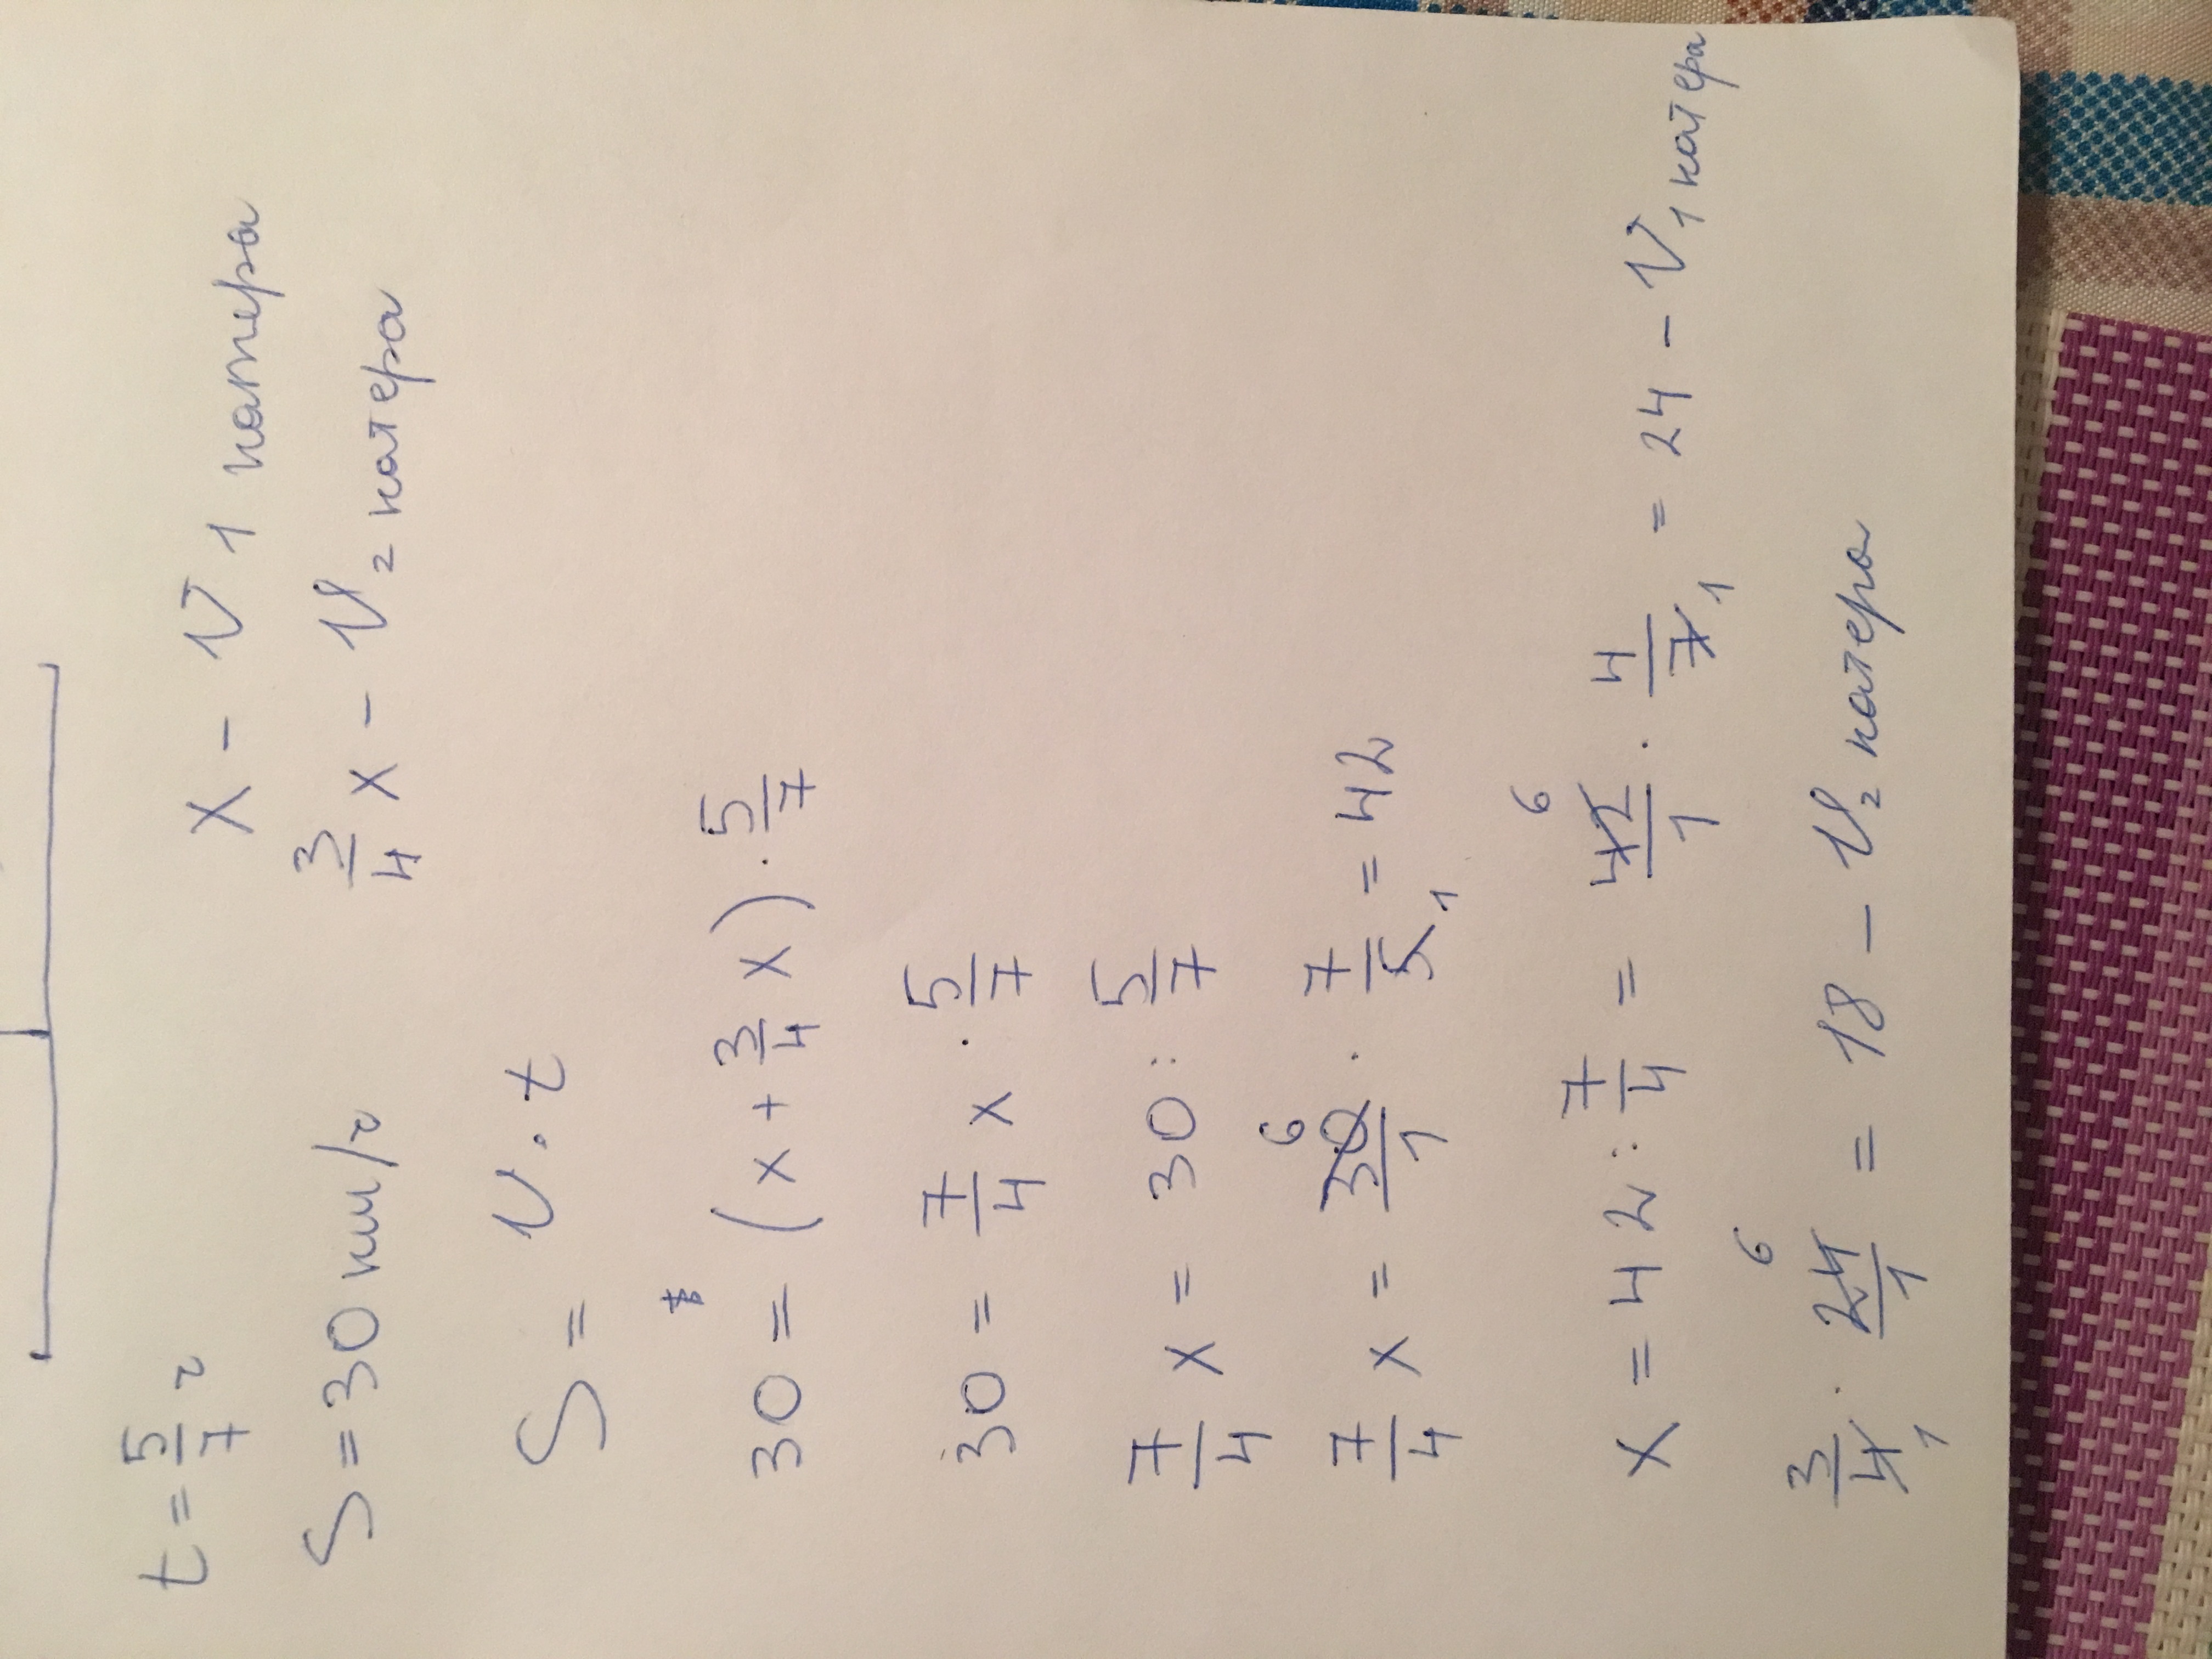 t = 5/7 ч
x - V 1 катера
S = 30 км/ч
3/4 x - V 2 катера
S = V · t
30 = (x + 3/4 x) · 5/7
30 = 7/4 x · 5/7
7/4 x = 30 : 5/7
7/4 x = 30/1 6 · 7/5 1 = 42
x = 42 : 7/4 = 42/1 6 · 4/7 1 = 24 - V 1 катера
3/4 1 · 24/1 6 = 18 - V 2 катера